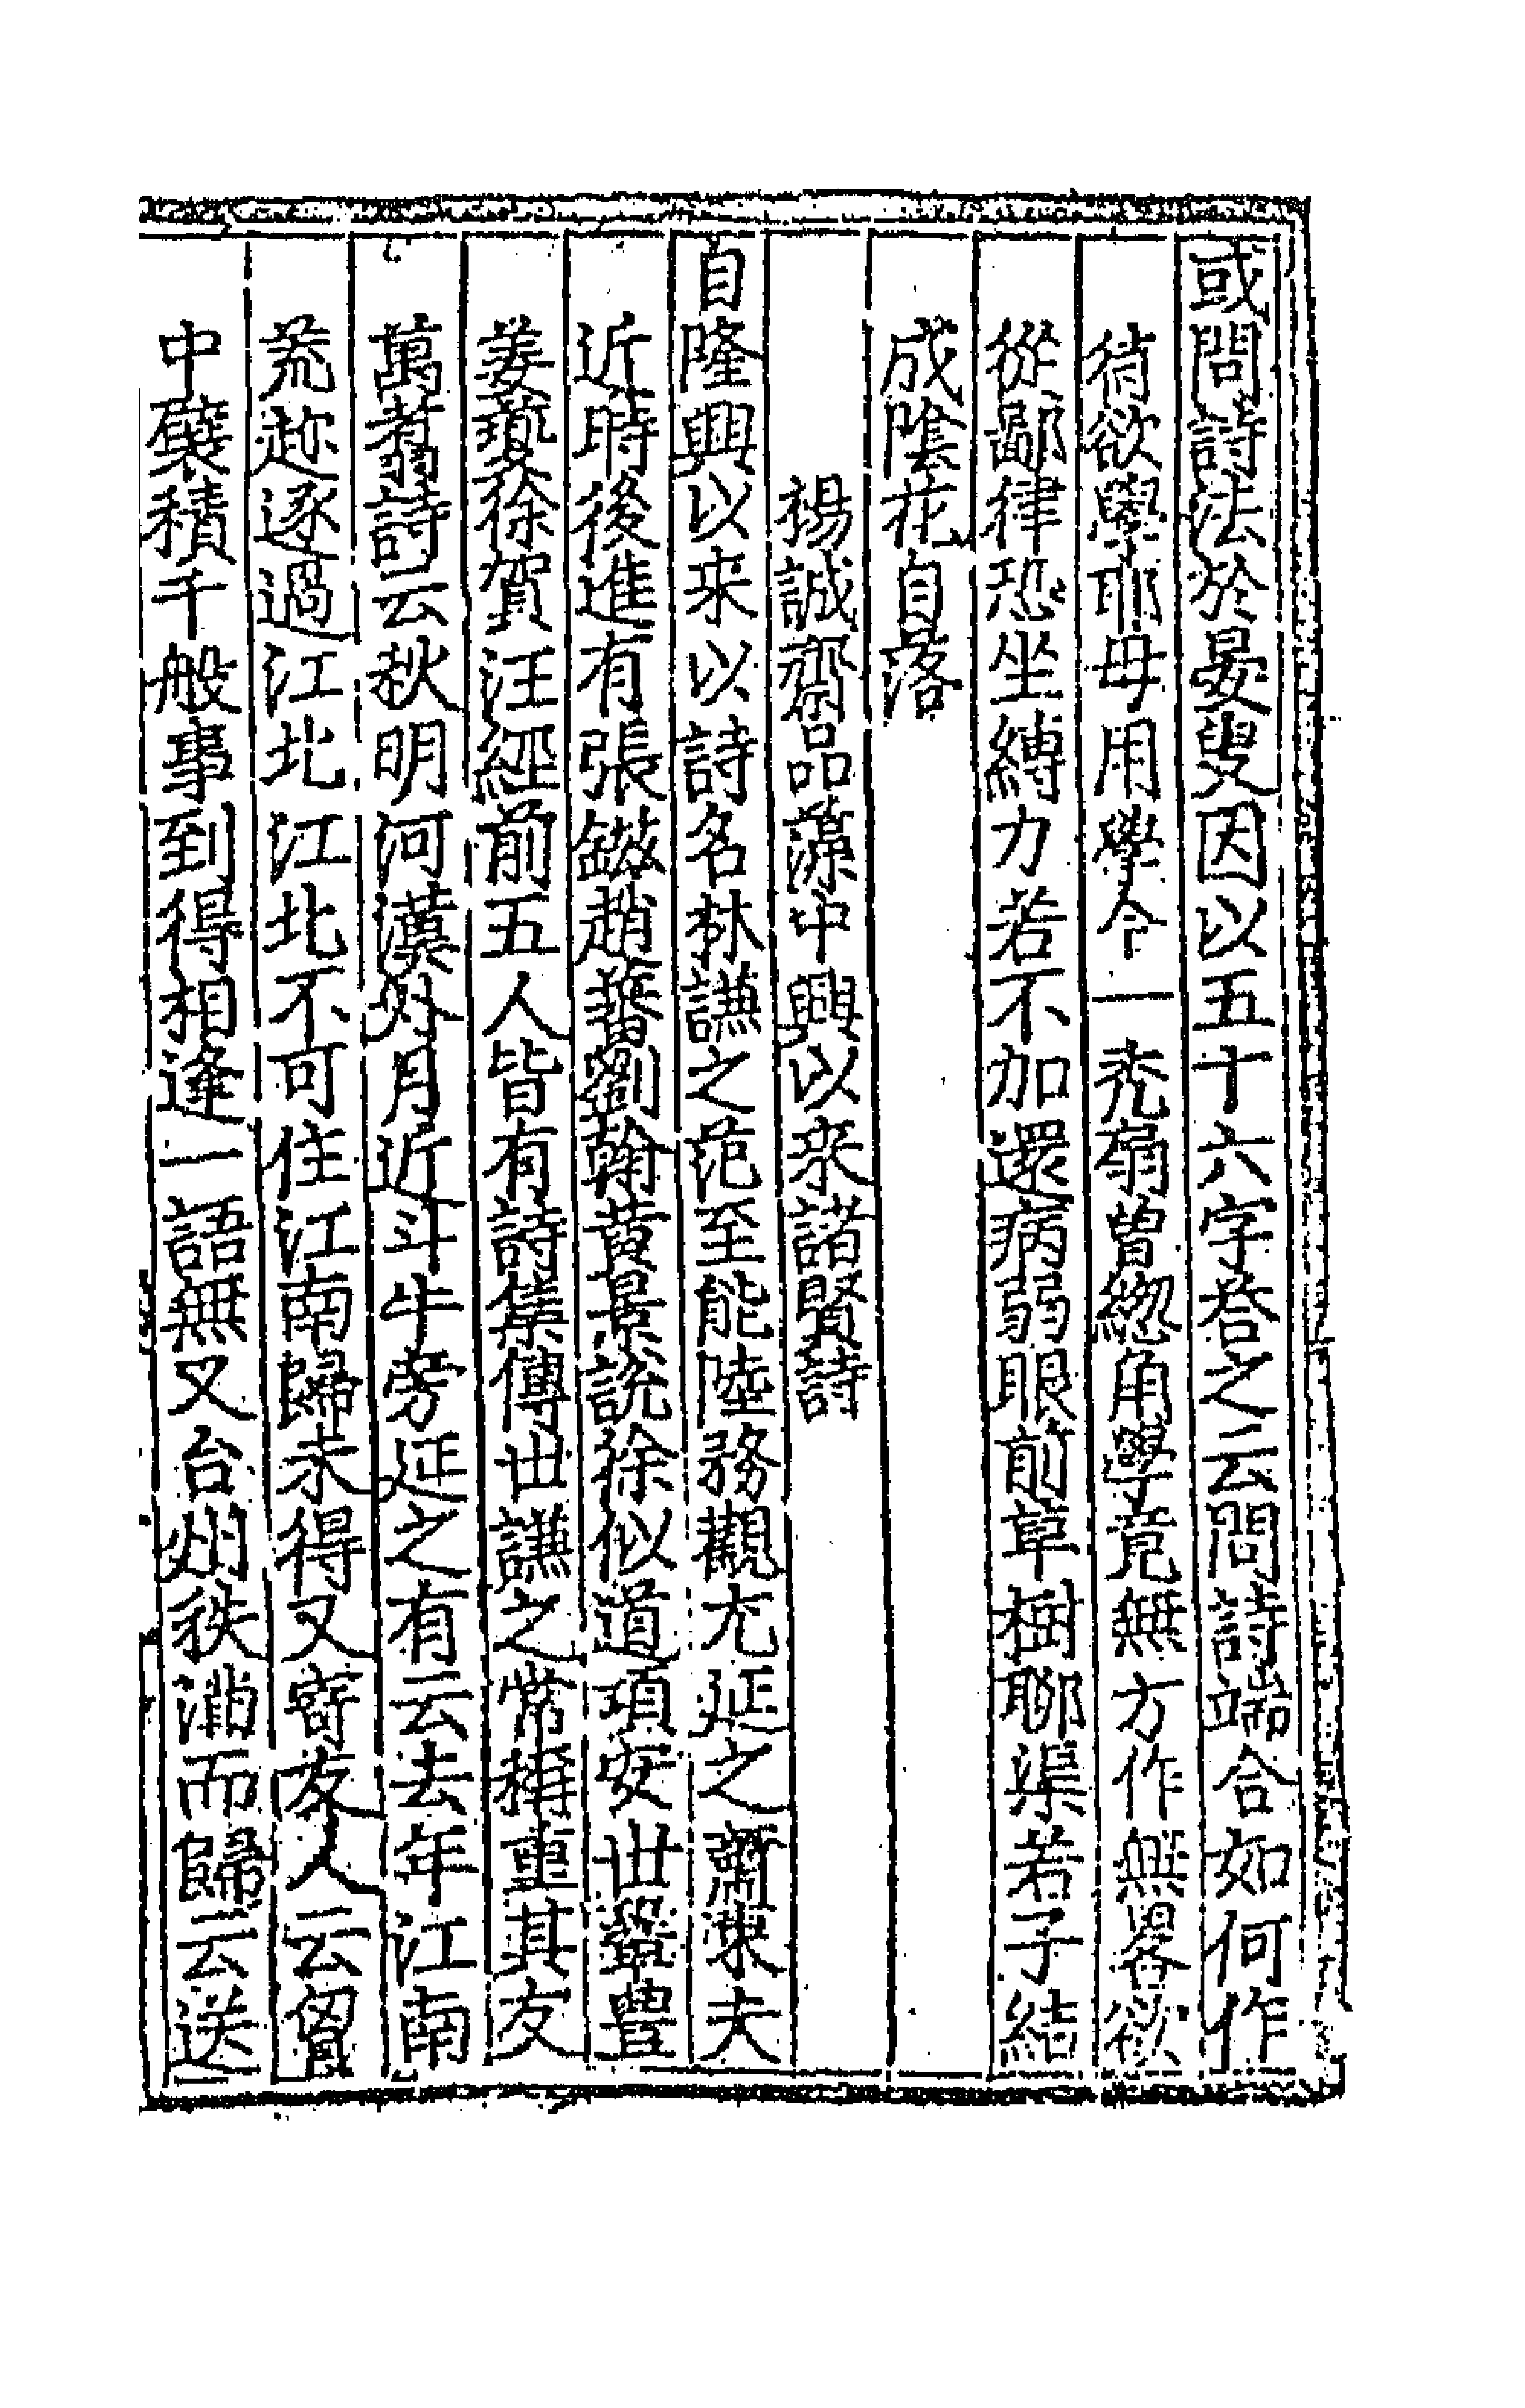 或問詩法於晏叟因以五十六字答之云問詩端合如何作
待欲學耶毋用學今一禿翁曾總角學竟無方作無畧欲
從鄙律恐坐縛力若不加還病弱眼前草樹聊渠若子結
成陰花自落
楊誠齋品藻中興以來諸賢詩
自隆興以来以詩名林謙之范至能陸務觀尤延之蕭東夫
近時後進有張鎡趙蕃劉翰黄景說徐似道項安世鞏豊
姜夔徐賀汪經前五人皆有詩集傳世謙之常稱重其友
萬翥詩云秋明河漢外月近斗牛旁延之有云去年江南
荒趂逐過江北江北不可住江南歸未得又寄友人云胷
中襞積千般事到得相逢一語無又台州秩滿而歸云送